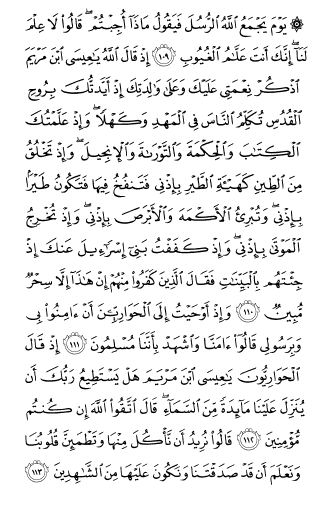 ۞ يَوْمَ يَجْمَعُ ٱللَّهُ ٱلرُّسُلَ فَيَقُولُ مَاذَآ أُجِبْتُمْ ۖ قَالُوا۟ لَا عِلْمَ
لَنَآ ۖ إِنَّكَ أَنتَ عَلَّـٰمُ ٱلْغُيُوبِ ١٠٩ إِذْ قَالَ ٱللَّهُ يَـٰعِيسَى ٱبْنَ مَرْيَمَ
ٱذْكُرْ نِعْمَتِى عَلَيْكَ وَعَلَىٰ وَٰلِدَتِكَ إِذْ أَيَّدتُّكَ بِرُوحِ
ٱلْقُدُسِ تُكَلِّمُ ٱلنَّاسَ فِى ٱلْمَهْدِ وَكَهْلًا ۖ وَإِذْ عَلَّمْتُكَ
ٱلْكِتَـٰبَ وَٱلْحِكْمَةَ وَٱلتَّوْرَىٰةَ وَٱلْإِنجِيلَ ۖ وَإِذْ تَخْلُقُ
مِنَ ٱلطِّينِ كَهَيْـَٔةِ ٱلطَّيْرِ بِإِذْنِى فَتَنفُخُ فِيهَا فَتَكُونُ طَيْرًۢا
بِإِذْنِى ۖ وَتُبْرِئُ ٱلْأَكْمَهَ وَٱلْأَبْرَصَ بِإِذْنِى ۖ وَإِذْ تُخْرِجُ
ٱلْمَوْتَىٰ بِإِذْنِى ۖ وَإِذْ كَفَفْتُ بَنِىٓ إِسْرَٰٓءِيلَ عَنكَ إِذْ
جِئْتَهُم بِٱلْبَيِّنَـٰتِ فَقَالَ ٱلَّذِينَ كَفَرُوا۟ مِنْهُمْ إِنْ هَـٰذَآ إِلَّا سِحْرٌ
مُّبِينٌ ١١٠ وَإِذْ أَوْحَيْتُ إِلَى ٱلْحَوَارِيِّـۧنَ أَنْ ءَامِنُوا۟ بِى
وَبِرَسُولِى قَالُوٓا۟ ءَامَنَّا وَٱشْهَدْ بِأَنَّنَا مُسْلِمُونَ ١١١ إِذْ قَالَ
ٱلْحَوَارِيُّونَ يَـٰعِيسَى ٱبْنَ مَرْيَمَ هَلْ يَسْتَطِيعُ رَبُّكَ أَن
يُنَزِّلَ عَلَيْنَا مَآئِدَةً مِّنَ ٱلسَّمَآءِ ۖ قَالَ ٱتَّقُوا۟ ٱللَّهَ إِن كُنتُم
مُّؤْمِنِينَ ١١٢ قَالُوا۟ نُرِيدُ أَن نَّأْكُلَ مِنْهَا وَتَطْمَئِنَّ قُلُوبُنَا
وَنَعْلَمَ أَن قَدْ صَدَقْتَنَا وَنَكُونَ عَلَيْهَا مِنَ ٱلشَّـٰهِدِينَ ١١٣